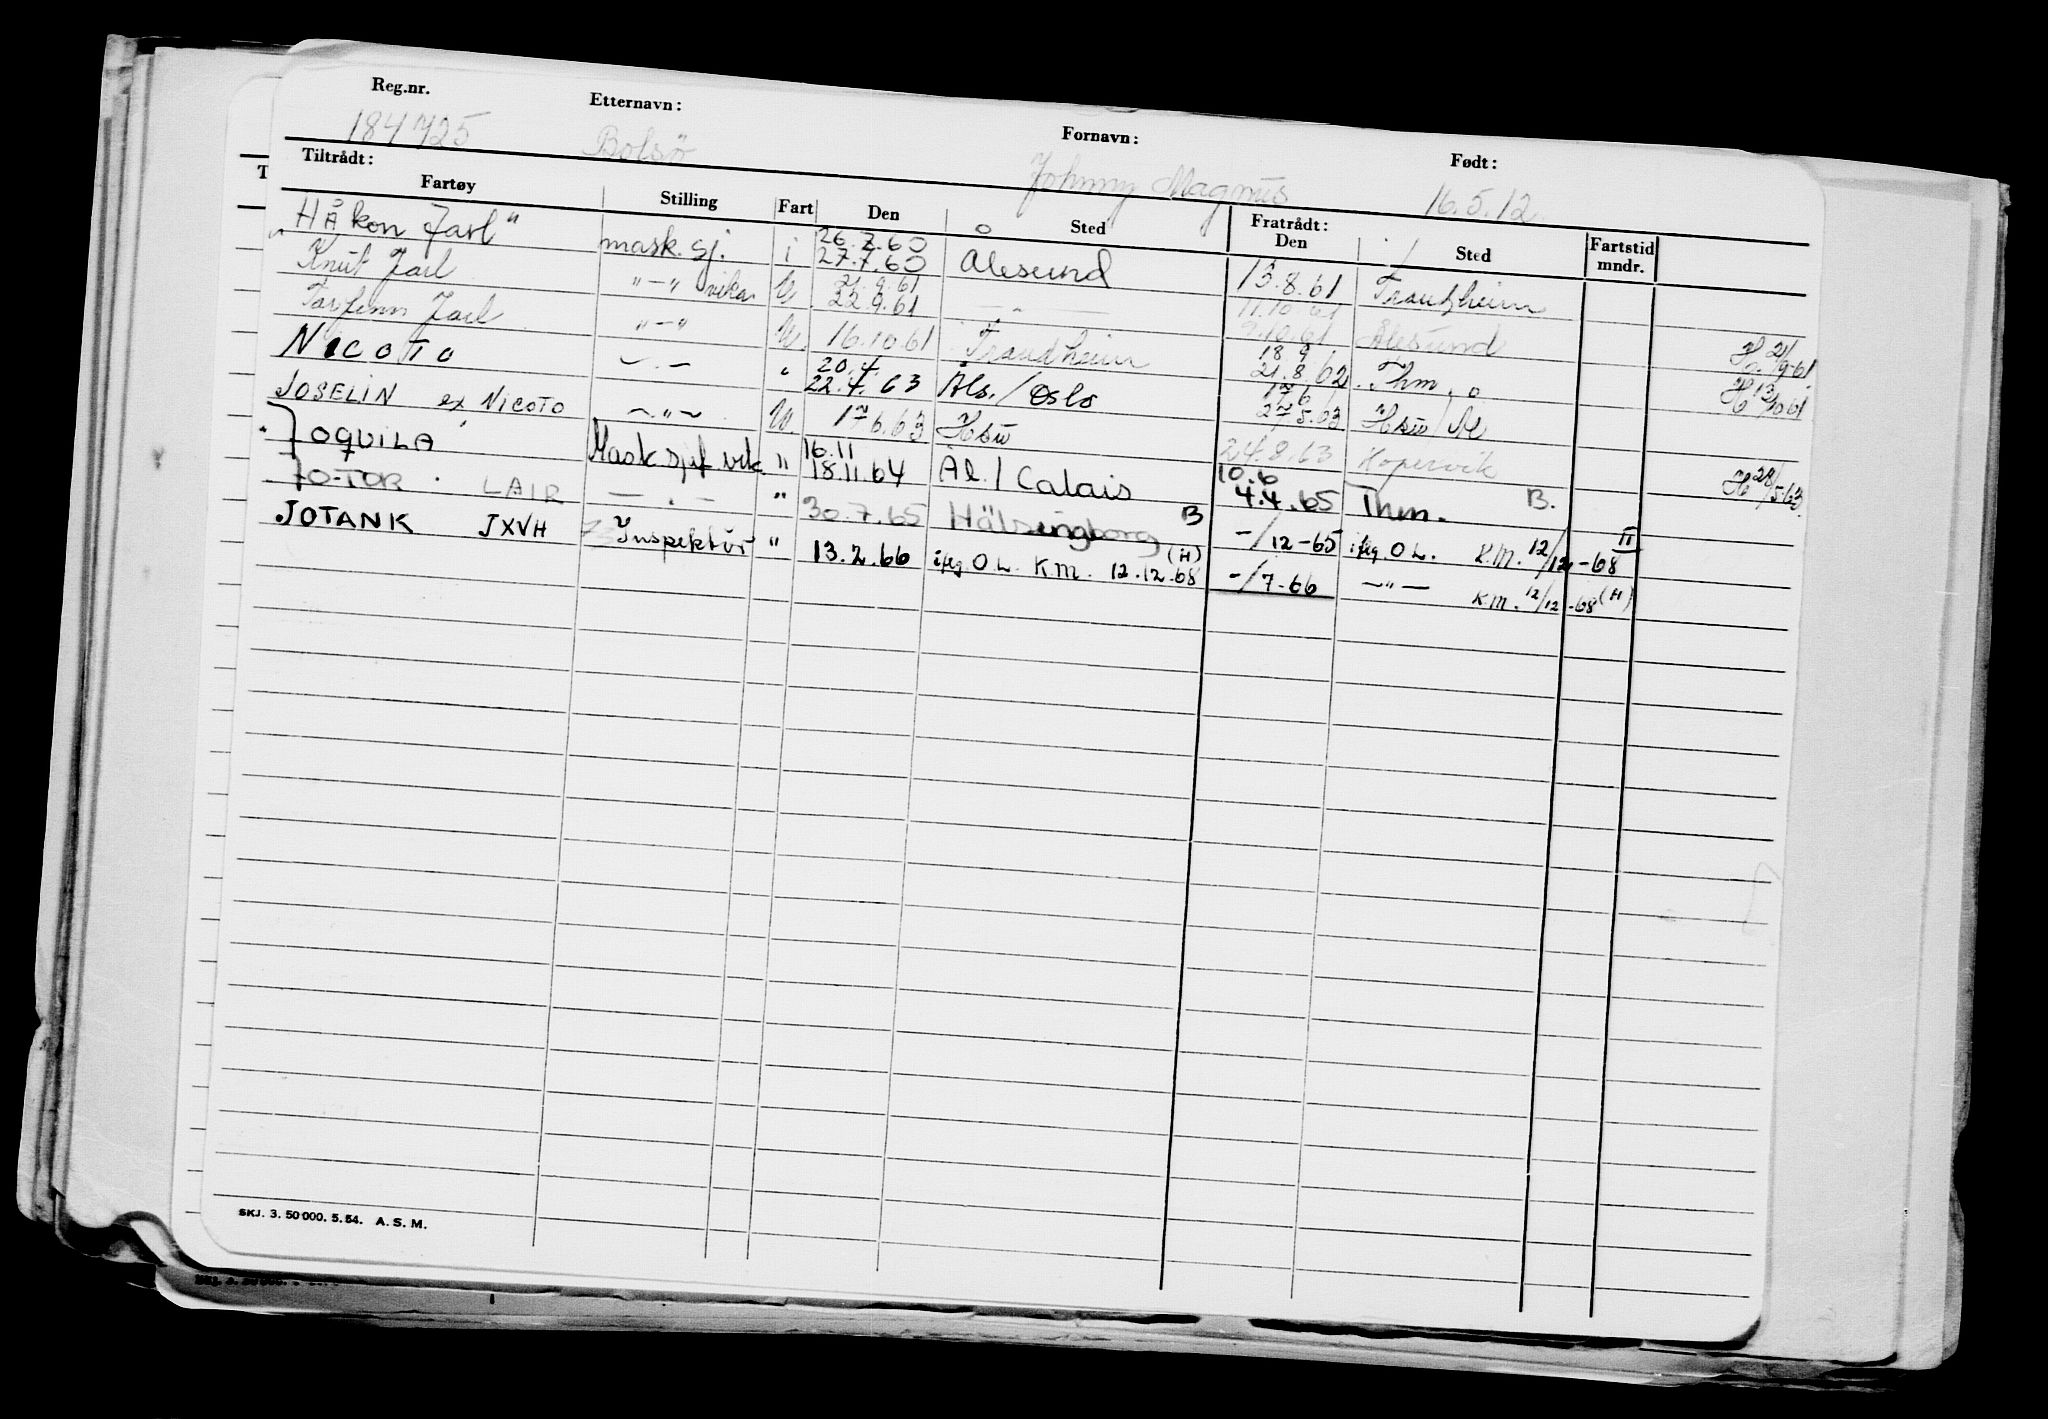 Reg.nr. Etternavn: Fornavn: Født:
184725 Bolsö Johnny Magnus 16.5.12
Tiltrådt: Fratrådt:
Fartøy Stilling Fart Den Sted Den Sted Fartstid mndr.
HÅkon Jarl" mask.sj. i 26.7.60 27.7.60 Ålesund 13.8.61 Trondheim
Knut Jarl "—" vikar U 21.9.61 22.9.61 — " — 11.10.61 9.10.61 Ålesund H 21/9-61
Torfinn Jarl "—" U. 16.10.61 Trondheim 18.9 21.8.62 Thm. H 13/10 61
NICOTO —.— " 20.4. 22.4.63 Åls./Oslo 17/6 27.5.63 Hsu/Ål
JOSELIN ex NICOTO —"— U. 17.6.63 Hsu 24.8.63 Kopervik H 28/5-63
JOQUILA Mask sjef vik " 16.11 18.11.64 Ål./Calais 10.6 4.4.65 Thm. B.
JOTOR LAIR —.— " 30.7.65 Hälsingborg B -/12-65 ifeg. O.L. K.M. 12/12-68 H
JOTANK JXVH Inspektör " 13.2.66 ifeg. O.L. K.M. 12.12.68 (H) -/7-66 —"— K.M. 12/12-68 (H)
SKJ. 3. 50 000. 5. 54. A. S. M.